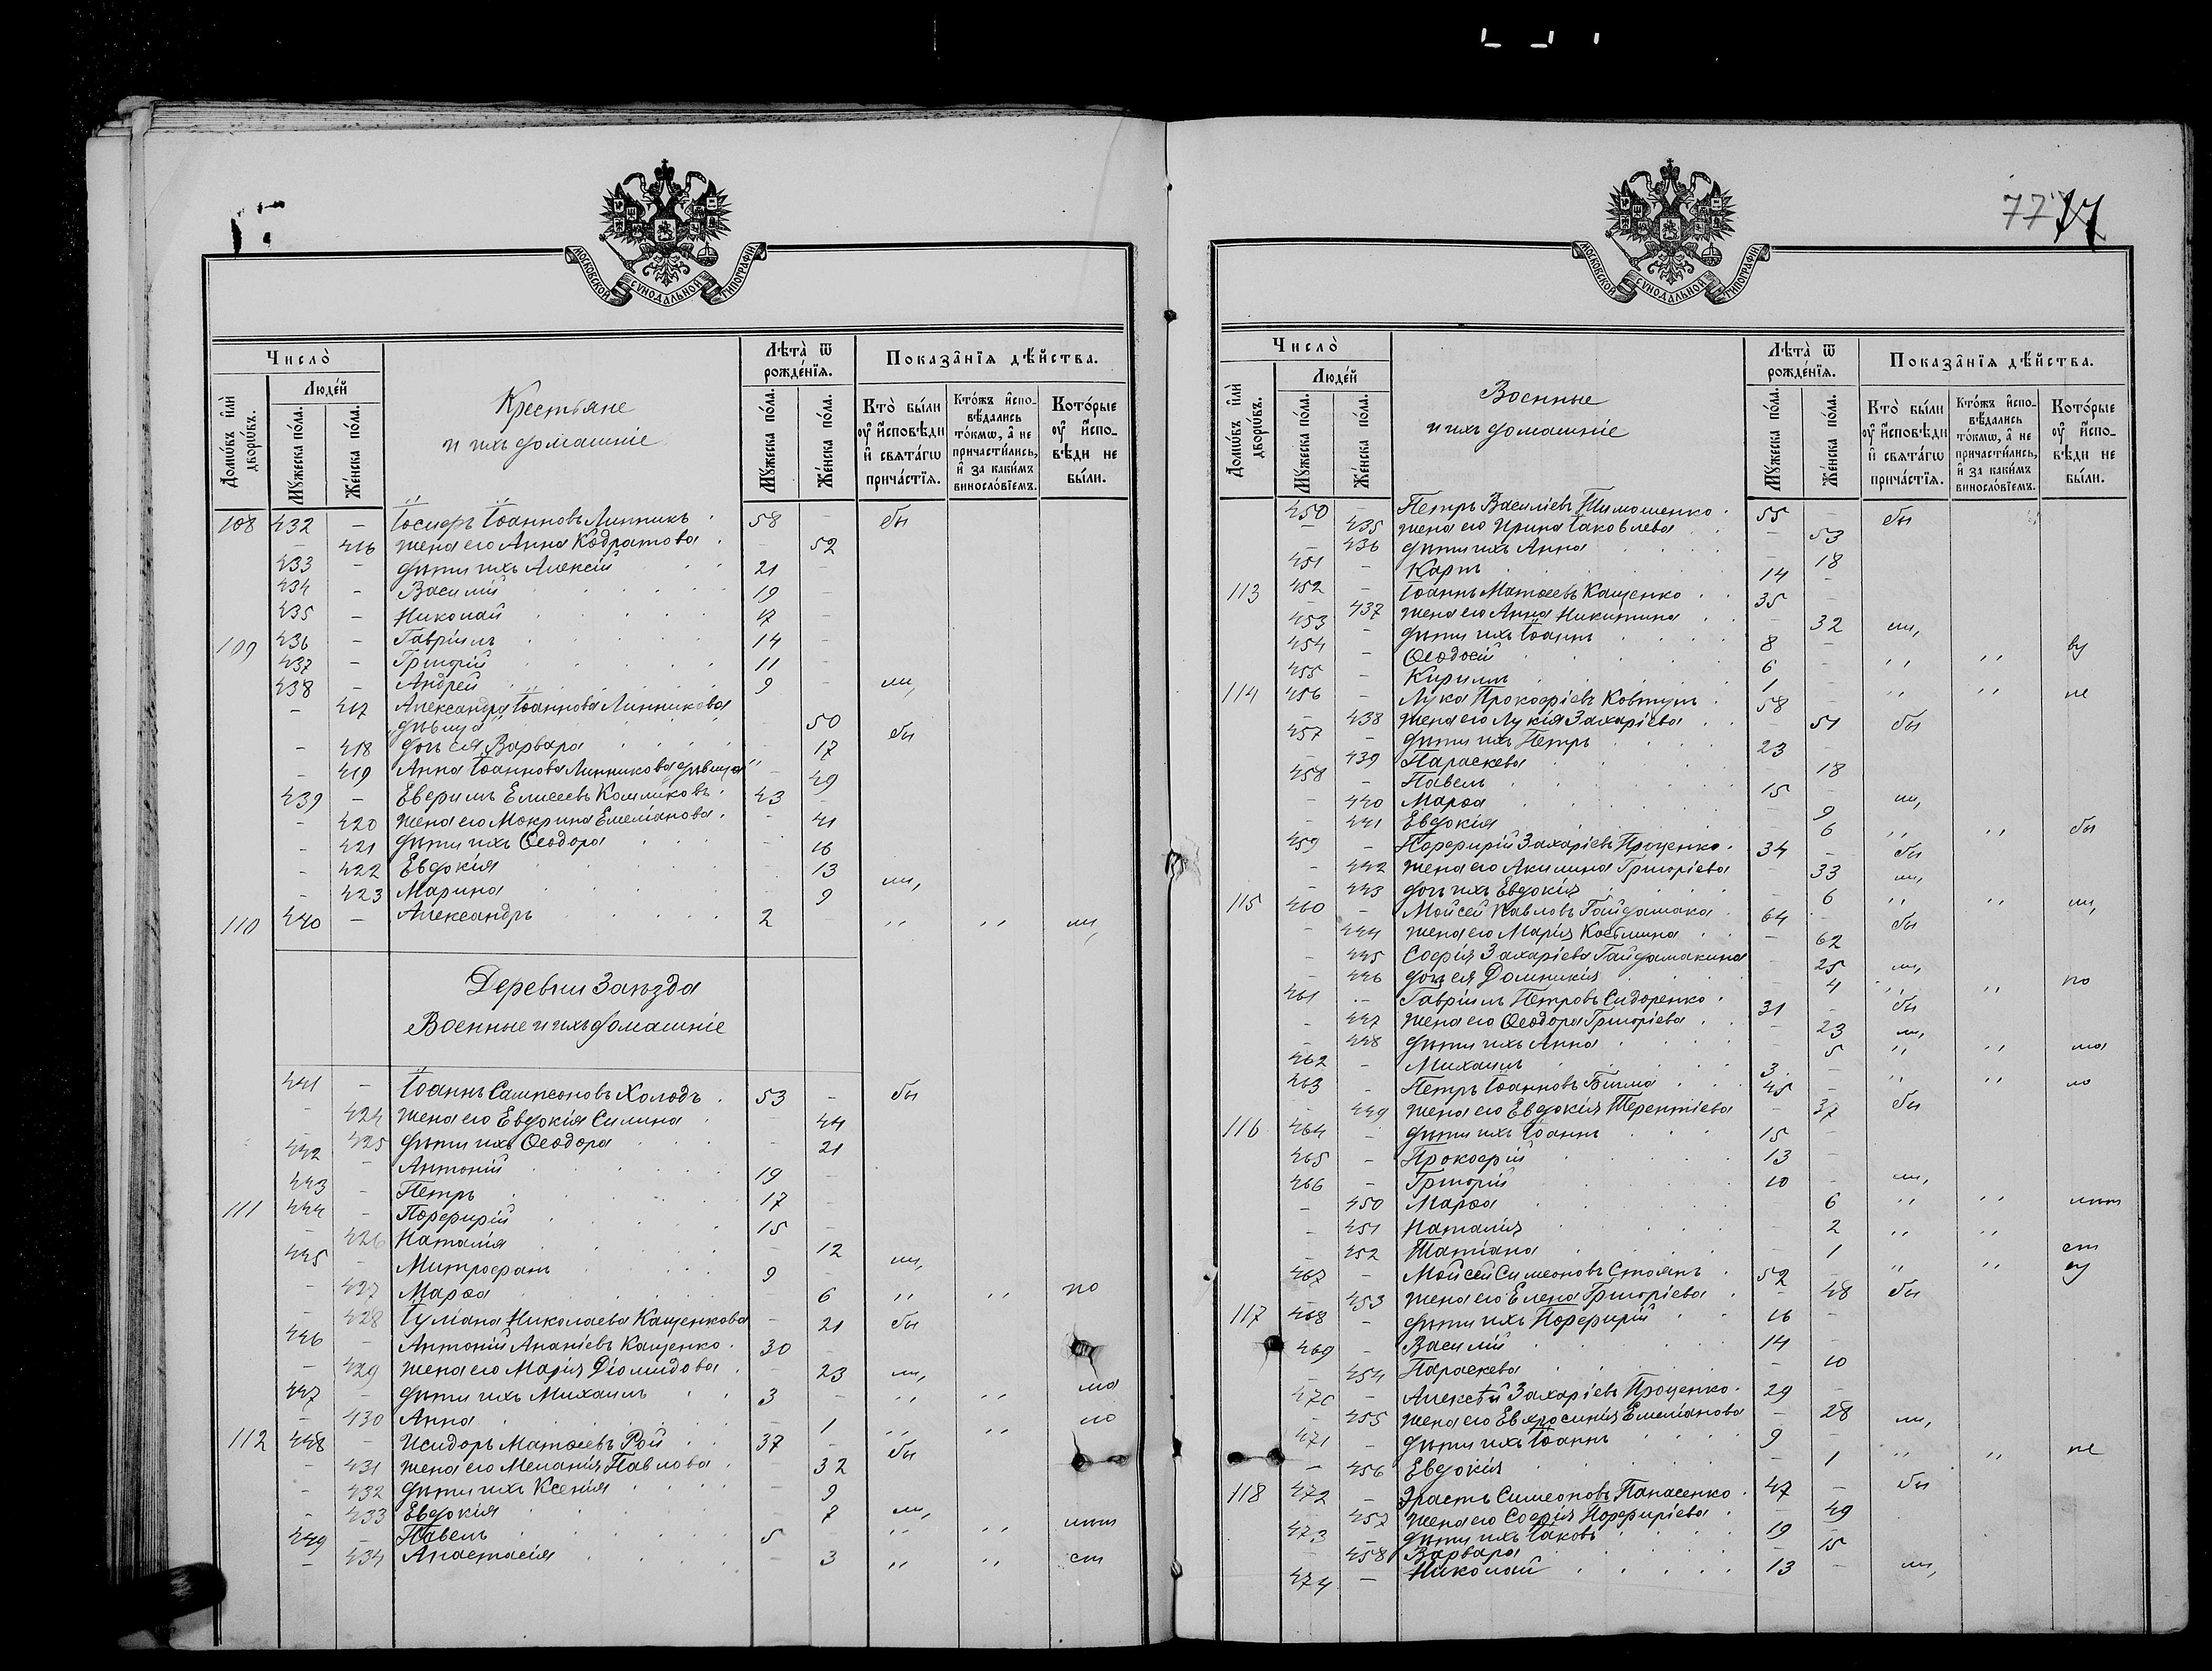 77
МОСКОВСКОЙ СУНОДАЛЬНОЙ ТИПОГРАФІИ
Число̀
Домѡ́въ и҆лѝ дворѡ́въ.
Люде́й
Мꙋ́жеска по́ла.
Же́нска по́ла.
Крестьяне
и ихъ домашніе
Лѣта̀ ѿ рожде́нїѧ.
Мꙋ́жеска по́ла.
Же́нска по́ла.
Показа̑нїѧ дѣ́йства.
Кто̀ бы́ли оу҆ и҆́сповѣди и҆ свѧта́гѡ прича́стїѧ.
Кто́жъ и҆спо-вѣ́дались то́кмѡ, а҆ не причасти́лись, и҆ за каки́мъ виносло́вїемъ.
Кото́рые оу҆ и҆́спо-вѣди не бы́ли.
108 432 – Іосифъ Іоанновъ Линникъ 58 – бы
– 416 жена его Анна Кодратова – 52
433 – дѣти ихъ Алексій 21 –
434 – Василій 19 –
435 – Николай 17 –
109 436 – Гавріилъ 14 –
437 – Григорій 11 –
438 – Андрей 9 – ли,
– 417 Александра Іоаннова Линникова
дѣвица – 50 бы
– 418 дочь ея Варвара – 17
– 419 Анна Іоаннова Линникова дѣвица – 49
439 – Елисеевъ 43 –
– 420 жена его Мокрина Емеліанова – 41
– 421 дѣти ихъ Ѳеодора – 16
– 422 Евдокія 13
– 423 Марина 9 ли,
110 440 – Александръ 2 ,, ,, ли,
Деревни Заѣзда
Военные и ихъ домашніе
441 – Іоаннъ Сампсоновъ Холодъ 53 – бы
– 424 жена его Евдокія Силина – 44
425 дѣти ихъ Ѳеодора – 21
442 – Антоній 19 –
443 – Петръ 17 –
111 444 – Порфирій 15 –
– 426 Наталія – 12
445 – Митрофанъ 9 – ли,
– 427 Марѳа – 6 ,, ,, по
– 428 Іуліана Николаева Кащенкова – 21 бы
446 – Антоній Ананіевъ Кащенко 30
– 429 жена его Марія Діомидова 23 ли,
447 – дѣти ихъ Михаилъ 3 – ,, ,, ма
– 430 Анна – 1 ,, ,, ло
112 448 – Исидоръ Матѳеевъ Рой 37 – бы
– 431 жена его Меланія Павлова – 32
– 432 дѣти ихъ Ксенія – 9
– 433 Евдокія 7 ли,
449 – Павелъ 5 ,, ,,
– 434 Анастасія – 3 ,, ,, ст
77
МОСКОВСКОЙ СУНОДАЛЬНОЙ ТИПОГРАФІИ
Число̀
Домѡ́въ и҆лѝ дворѡ́въ.
Люде́й
Мꙋ́жеска по́ла.
Же́нска по́ла.
Военные
и ихъ домашніе
Лѣта̀ ѿ рожде́нїѧ.
Мꙋ́жеска по́ла.
Же́нска по́ла.
Показа̑нїѧ дѣ́йства.
Кто̀ бы́ли оу҆ и҆́сповѣди и҆ свѧта́гѡ прича́стїѧ.
Кто́жъ и҆спо-вѣ́дались то́кмѡ, а҆ не причасти́лись, и҆ за каки́мъ виносло́вїемъ.
Кото́рые оу҆ и҆́спо-вѣди не бы́ли.
450 – Петръ Василіевъ Тимошенко 55 – бы
– 435 жена его Ирина Іаковлева – 53
– 436 дѣти ихъ Анна 18
451 – Карпъ 14 –
113 452 – Іоаннъ Матѳеевъ Кащенко 35 –
– 437 жена его Анна Никитина – 32 ли,
453 – дѣти ихъ Іоаннъ 8 – ву
454 – Ѳеодосій 6 – ,, ,,
455 – Кириллъ 1 – ,, ,, не
114 456 – Лука Прокофіевъ Ковтунъ 58 –
– 438 жена его Лукія Захаріева – 51 бы
457 – дѣти ихъ Петръ 23 –
– 439 Параскева – 18
458 – Павелъ 15 –
– 440 Марѳа – 9 ли,
– 441 Евдокія – 6 ,, ,, бы
459 – Порфирій Захаріевъ Проценко 34 – бы
– 442 жена его Акилина Григоріева – 33 ли,
– 443 дочь ихъ Евдокія – 6 ,, ,, ли,
115 460 – Мойсей Павловъ Гайдамака 64 – бы
– 444 жена его Марія – 62
– 445 Софія Захаріева Гайдамакина – 25 ли,
– 446 дочь ея Домникія – 4 ,, ,, по
461 – Гавріилъ Петровъ Сидоренко 31 – бы
– 447 жена его Ѳеодора Григоріева – 23 ли,
– 448 дѣти ихъ Анна – 5 ,, ,, ма
462 – Михаилъ 3 – ,, ,, ло
463 – Петръ Іоанновъ 45 –
– 449 жена его Евдокія Терентіева – 37 бы
116 464 – дѣти ихъ Іоаннъ 15 –
465 – Прокофій 13 –
466 – Григорій 10 – ли,
– 450 Марѳа – 6 ,, ,,
– 451 Наталія – 2 ,, ,,
– 452 Татіана – 1 ,, ,, ст
467 – Мойсей Симеоновъ Стоянъ 52 ву
– 453 жена его Елена Григоріева – 48 бы
117 468 – дѣти ихъ Порфирій 16 –
469 – Василій 14 –
– 454 Параскева – 10
470 – Алексѣй Захаріевъ Проценко 29 –
– 455 жена его Евфросинія Емеліанова – 28 ли,
471 – дѣти ихъ Іоаннъ 9
– 456 Евдокія 1 ,, ,, не
118 472 – Эрастъ Симеоновъ Панасенко 47 – бы
– 457 жена его Софія Порфиріева 49
473 – дѣти ихъ Іаковъ 19
– 458 Варвара – 15
474 – Николай 13 – ли,